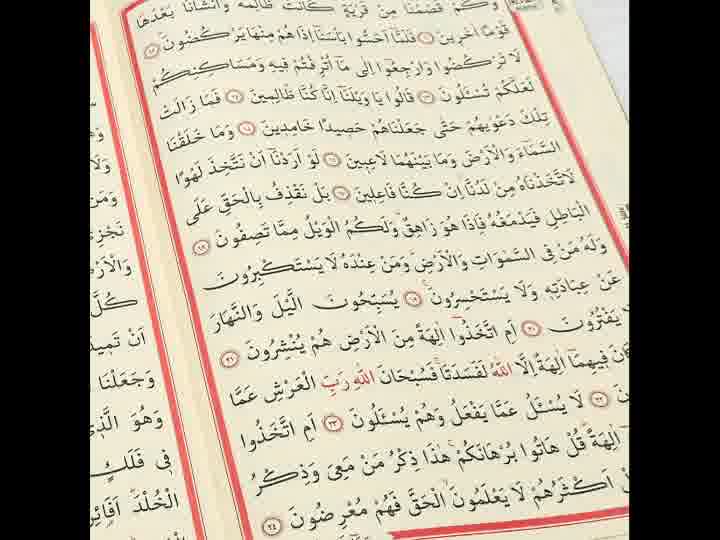 وَكَمْ قَصَمْنَا مِنْ قَرْيَةٍ كَانَتْ ظَالِمَةً وَاَنْشَأْنَا بَعْدَهَا
قَوْمًا اٰخَرٖينَ ﴿١١﴾ فَلَمَّٓا اَحَسُّوا بَأْسَنَٓا اِذَا هُمْ مِنْهَا يَرْكُضُونَ ﴿١٢﴾
لَا تَرْكُضُوا وَارْجِعُٓوا اِلٰى مَٓا اُتْرِفْتُمْ فٖيهِ وَمَسَاكِنِكُمْ
لَعَلَّكُمْ تُسْـَٔلُونَ ﴿١٣﴾ قَالُوا يَا وَيْلَنَٓا اِنَّا كُنَّا ظَالِمٖينَ ﴿١٤﴾ فَمَا زَالَتْ
تِلْكَ دَعْوٰيهُمْ حَتّٰى جَعَلْنَاهُمْ حَصٖيدًا خَامِدٖينَ ﴿١٥﴾ وَمَا خَلَقْنَا
السَّمَٓاءَ وَالْاَرْضَ وَمَا بَيْنَهُمَا لَاعِبٖينَ ﴿١٦﴾ لَوْ اَرَدْنَٓا اَنْ نَتَّخِذَ لَهْوًا
لَاتَّخَذْنَاهُ مِنْ لَدُنَّٓا اِنْ كُنَّا فَاعِلٖينَ ﴿١٧﴾ بَلْ نَقْذِفُ بِالْحَقِّ عَلَى
الْبَاطِلِ فَيَدْمَغُهُ فَاِذَا هُوَ زَاهِقٌ وَلَكُمُ الْوَيْلُ مِمَّا تَصِفُونَ ﴿١٨﴾
وَلَهُ مَنْ فِى السَّمٰوَاتِ وَالْاَرْضِ وَمَنْ عِنْدَهُ لَا يَسْتَكْبِرُونَ
عَنْ عِبَادَتِهٖ وَلَا يَسْتَحْسِرُونَ ﴿١٩﴾ يُسَبِّحُونَ الَّيْلَ وَالنَّهَارَ
لَا يَفْتُرُونَ ﴿٢٠﴾ اَمِ اتَّخَذُٓوا اٰلِهَةً مِنَ الْاَرْضِ هُمْ يُنْشِرُونَ ﴿٢١﴾
كَانَ فٖيهِمَٓا اٰلِهَةٌ اِلَّا اللّٰهُ لَفَسَدَتَا فَسُبْحَانَ اللّٰهِ رَبِّ الْعَرْشِ عَمَّا
﴿٢٢﴾ لَا يُسْـَٔلُ عَمَّا يَفْعَلُ وَهُمْ يُسْـَٔلُونَ ﴿٢٣﴾ اَمِ اتَّخَذُوا
اٰلِهَةً قُلْ هَاتُوا بُرْهَانَكُمْ هٰذَا ذِكْرُ مَنْ مَعِىَ وَذِكْرُ
اَكْثَرُهُمْ لَا يَعْلَمُونَ الْحَقَّ فَهُمْ مُعْرِضُونَ ﴿٢٤﴾
وَمَنْ
نَجْزٖى
وَالْاَرْضَ
كُلَّ
اَنْ تَمٖيدَ
وَجَعَلْنَا
وَهُوَ الَّذٖى
فٖى فَلَكٍ
الْخُلْدَ اَفَا۬ئِنْ